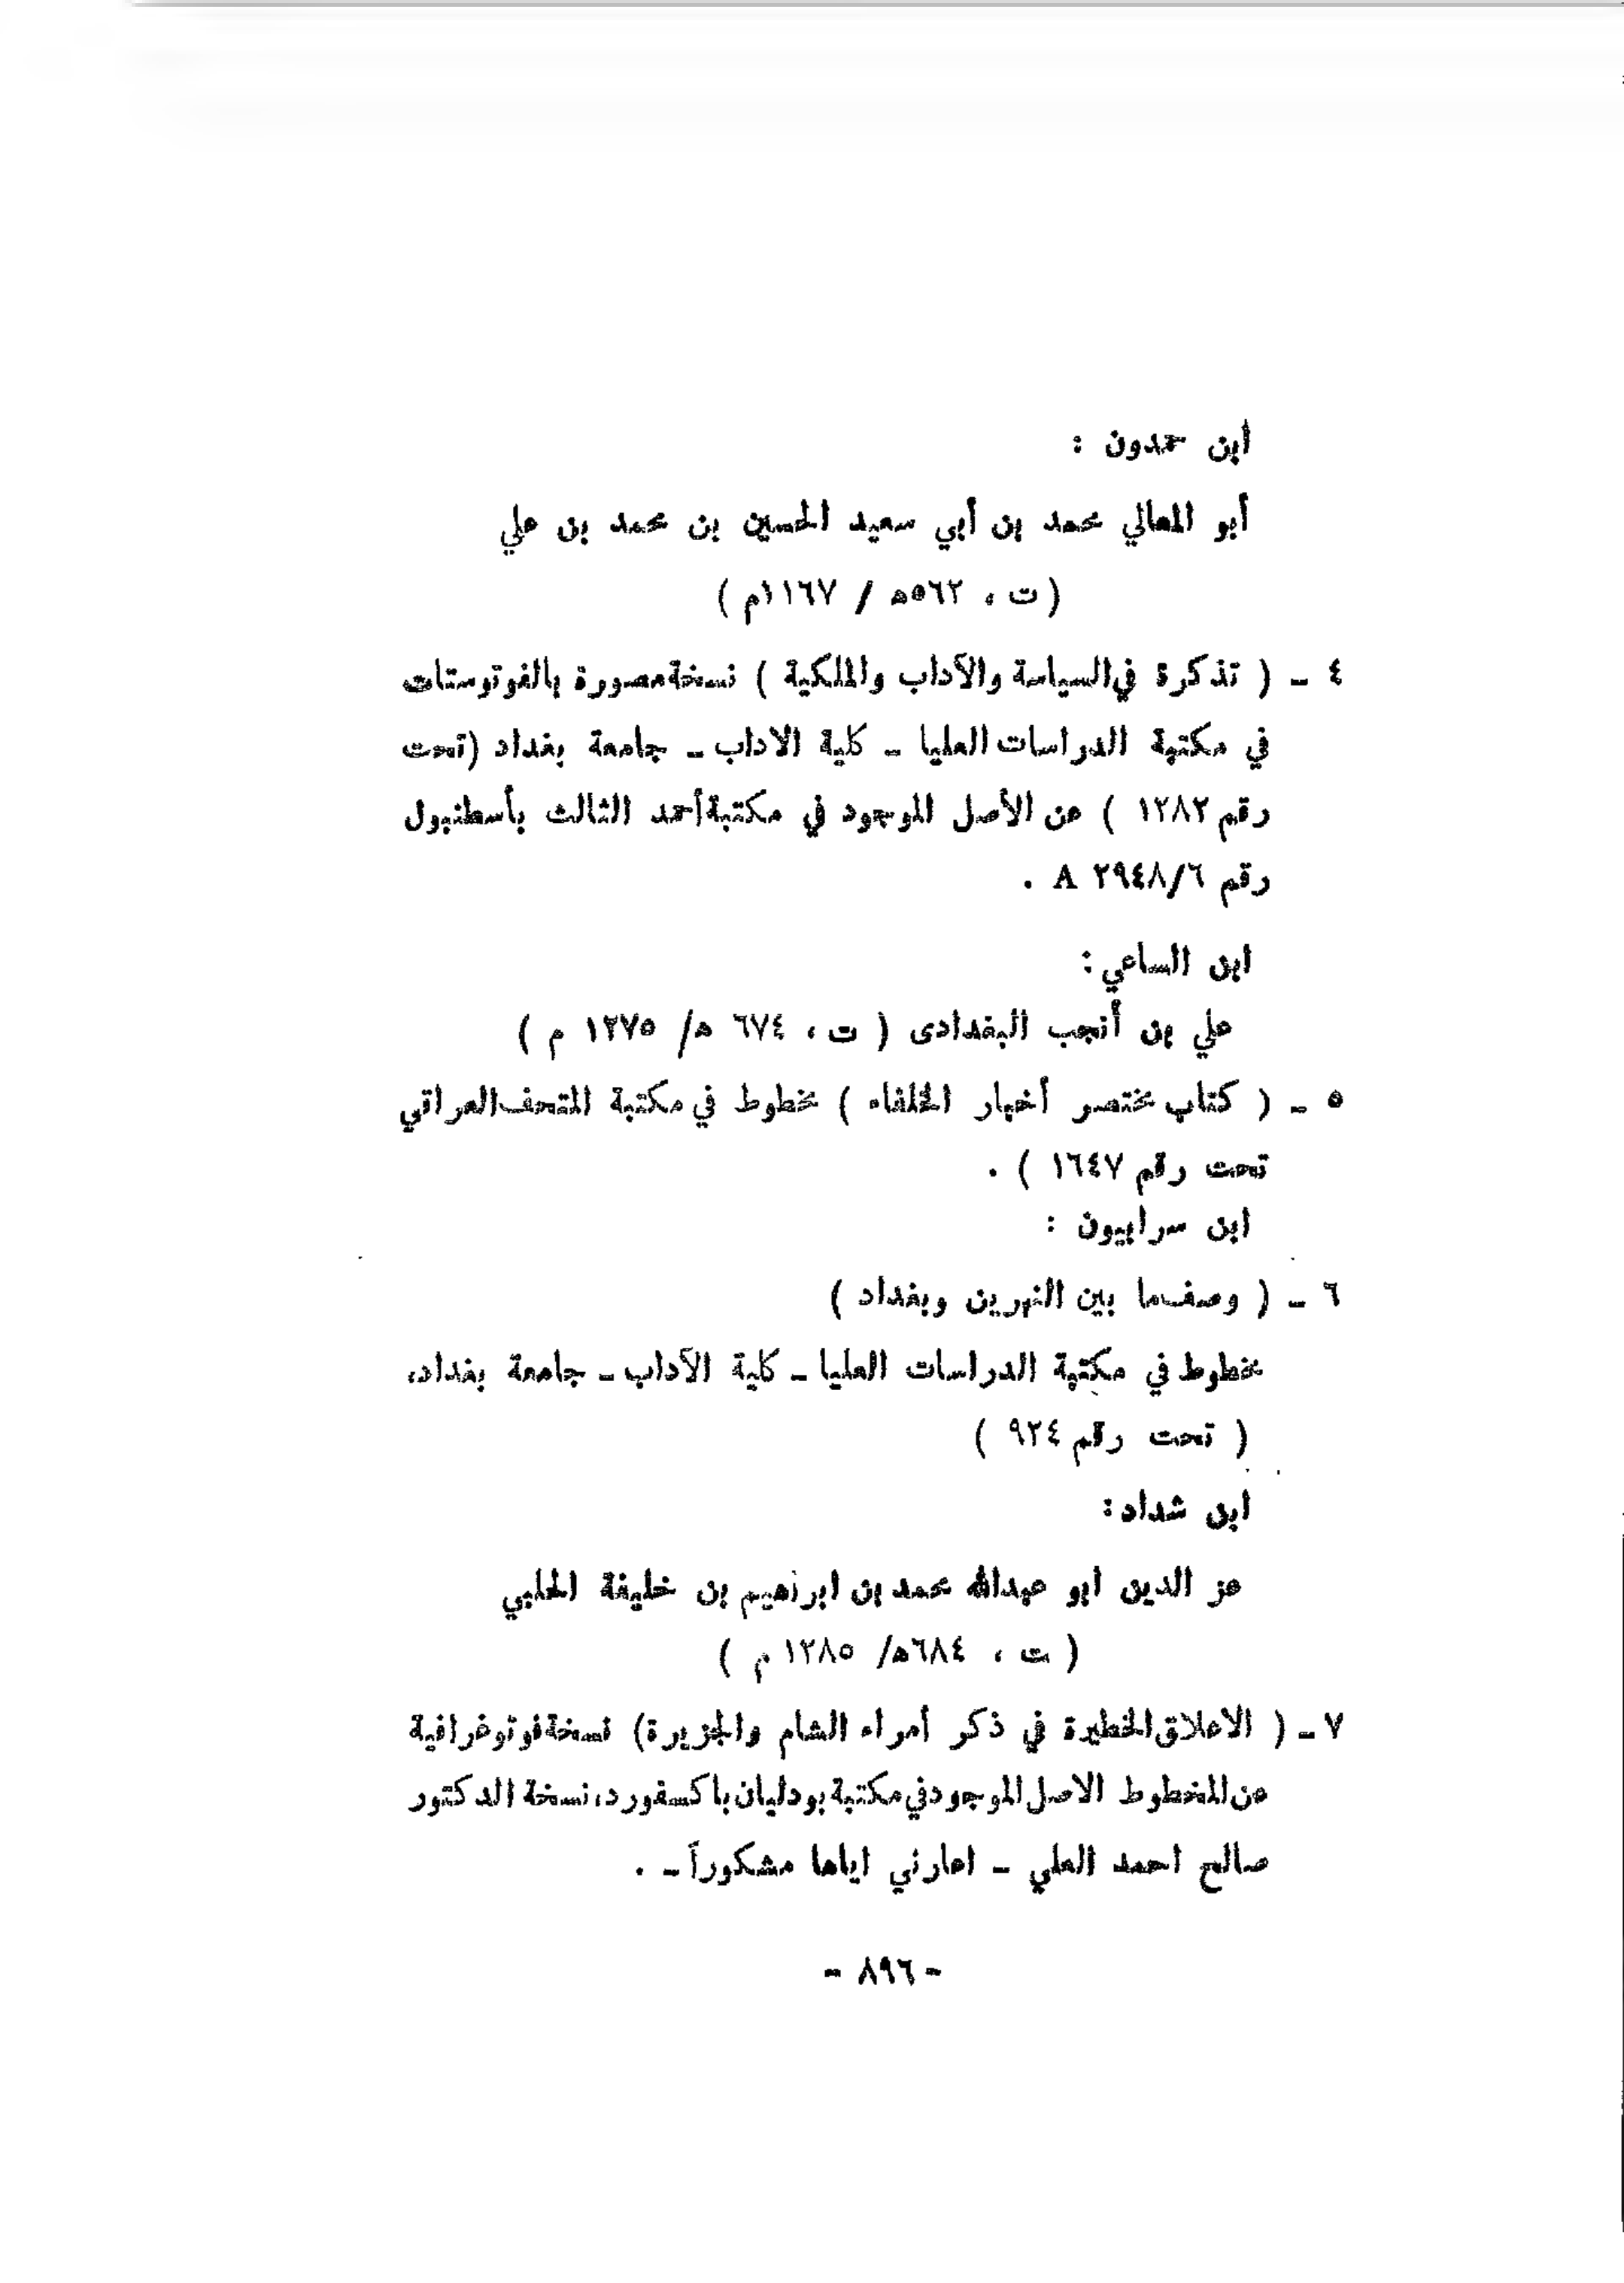 أبن حمدون :
أبو المعالي محمد بن أبي سعيد الحسين بن محمد بن علي
( ت ، ٥٦٢ه / ١١٦٧م )
٤ ـ ( تذكرة في السياسة والآداب والملكية ) نسخة مصورة بالفوتوستات
في مكتبة الدراسات العليا ـ كلية الاداب ـ جامعة بغداد (تحت
رقم ١٢٨٢ ) عن الأصل الموجود في مكتبة أحمد الثالث بأسطنبول
رقم ٢٩٤٨/٦ A .
ابن الساعي :
علي بن أنجب البغدادى ( ت ، ٦٧٤ ه/ ١٢٧٥ م )
٥ ـ ( كتاب مختصر أخبار الخلفاء ) مخطوط في مكتبة المتحف العراقي
تحت رقم ١٦٤٧ ) .
ابن سرابيون :
٦ ـ ( وصف ما بين النهرين وبغداد )
مخطوط في مكتبة الدراسات العليا ـ كلية الآداب ـ جامعة بغداد،
( تحت رقم ٩٢٤ )
ابن شداد :
عز الدين ابو عبدالله محمد بن ابراهيم بن خليفة الحلبي
( ت ، ٦٨٤ه/ ١٢٨٥ م )
٧ ـ ( الاعلاق الخطيرة في ذكر أمراء الشام والجزيرة) نسخة فوتوغرافية
عن المخطوط الاصل الموجود في مكتبة بودليان باكسفورد، نسخة الدكتور
صالح احمد العلي ـ اعارني اياها مشكوراً ـ .
- ٨٩٦ -